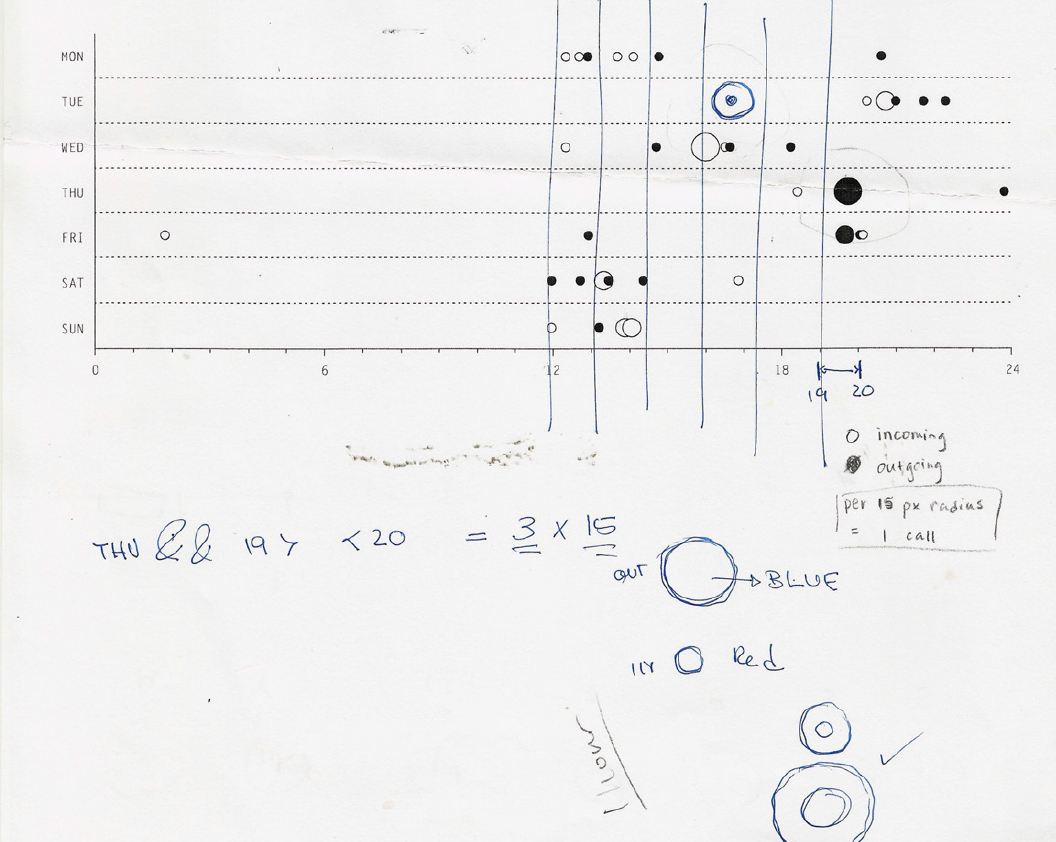 MON
TUE
WED
THU
FRI
SAT
SUN
0 6 12 18 24
19 20
incoming
outgoing
per 15 px radius
= 1 call
THU && 19 > < 20 = 3 X 15
OUT
BLUE
IN
Red
1 hour